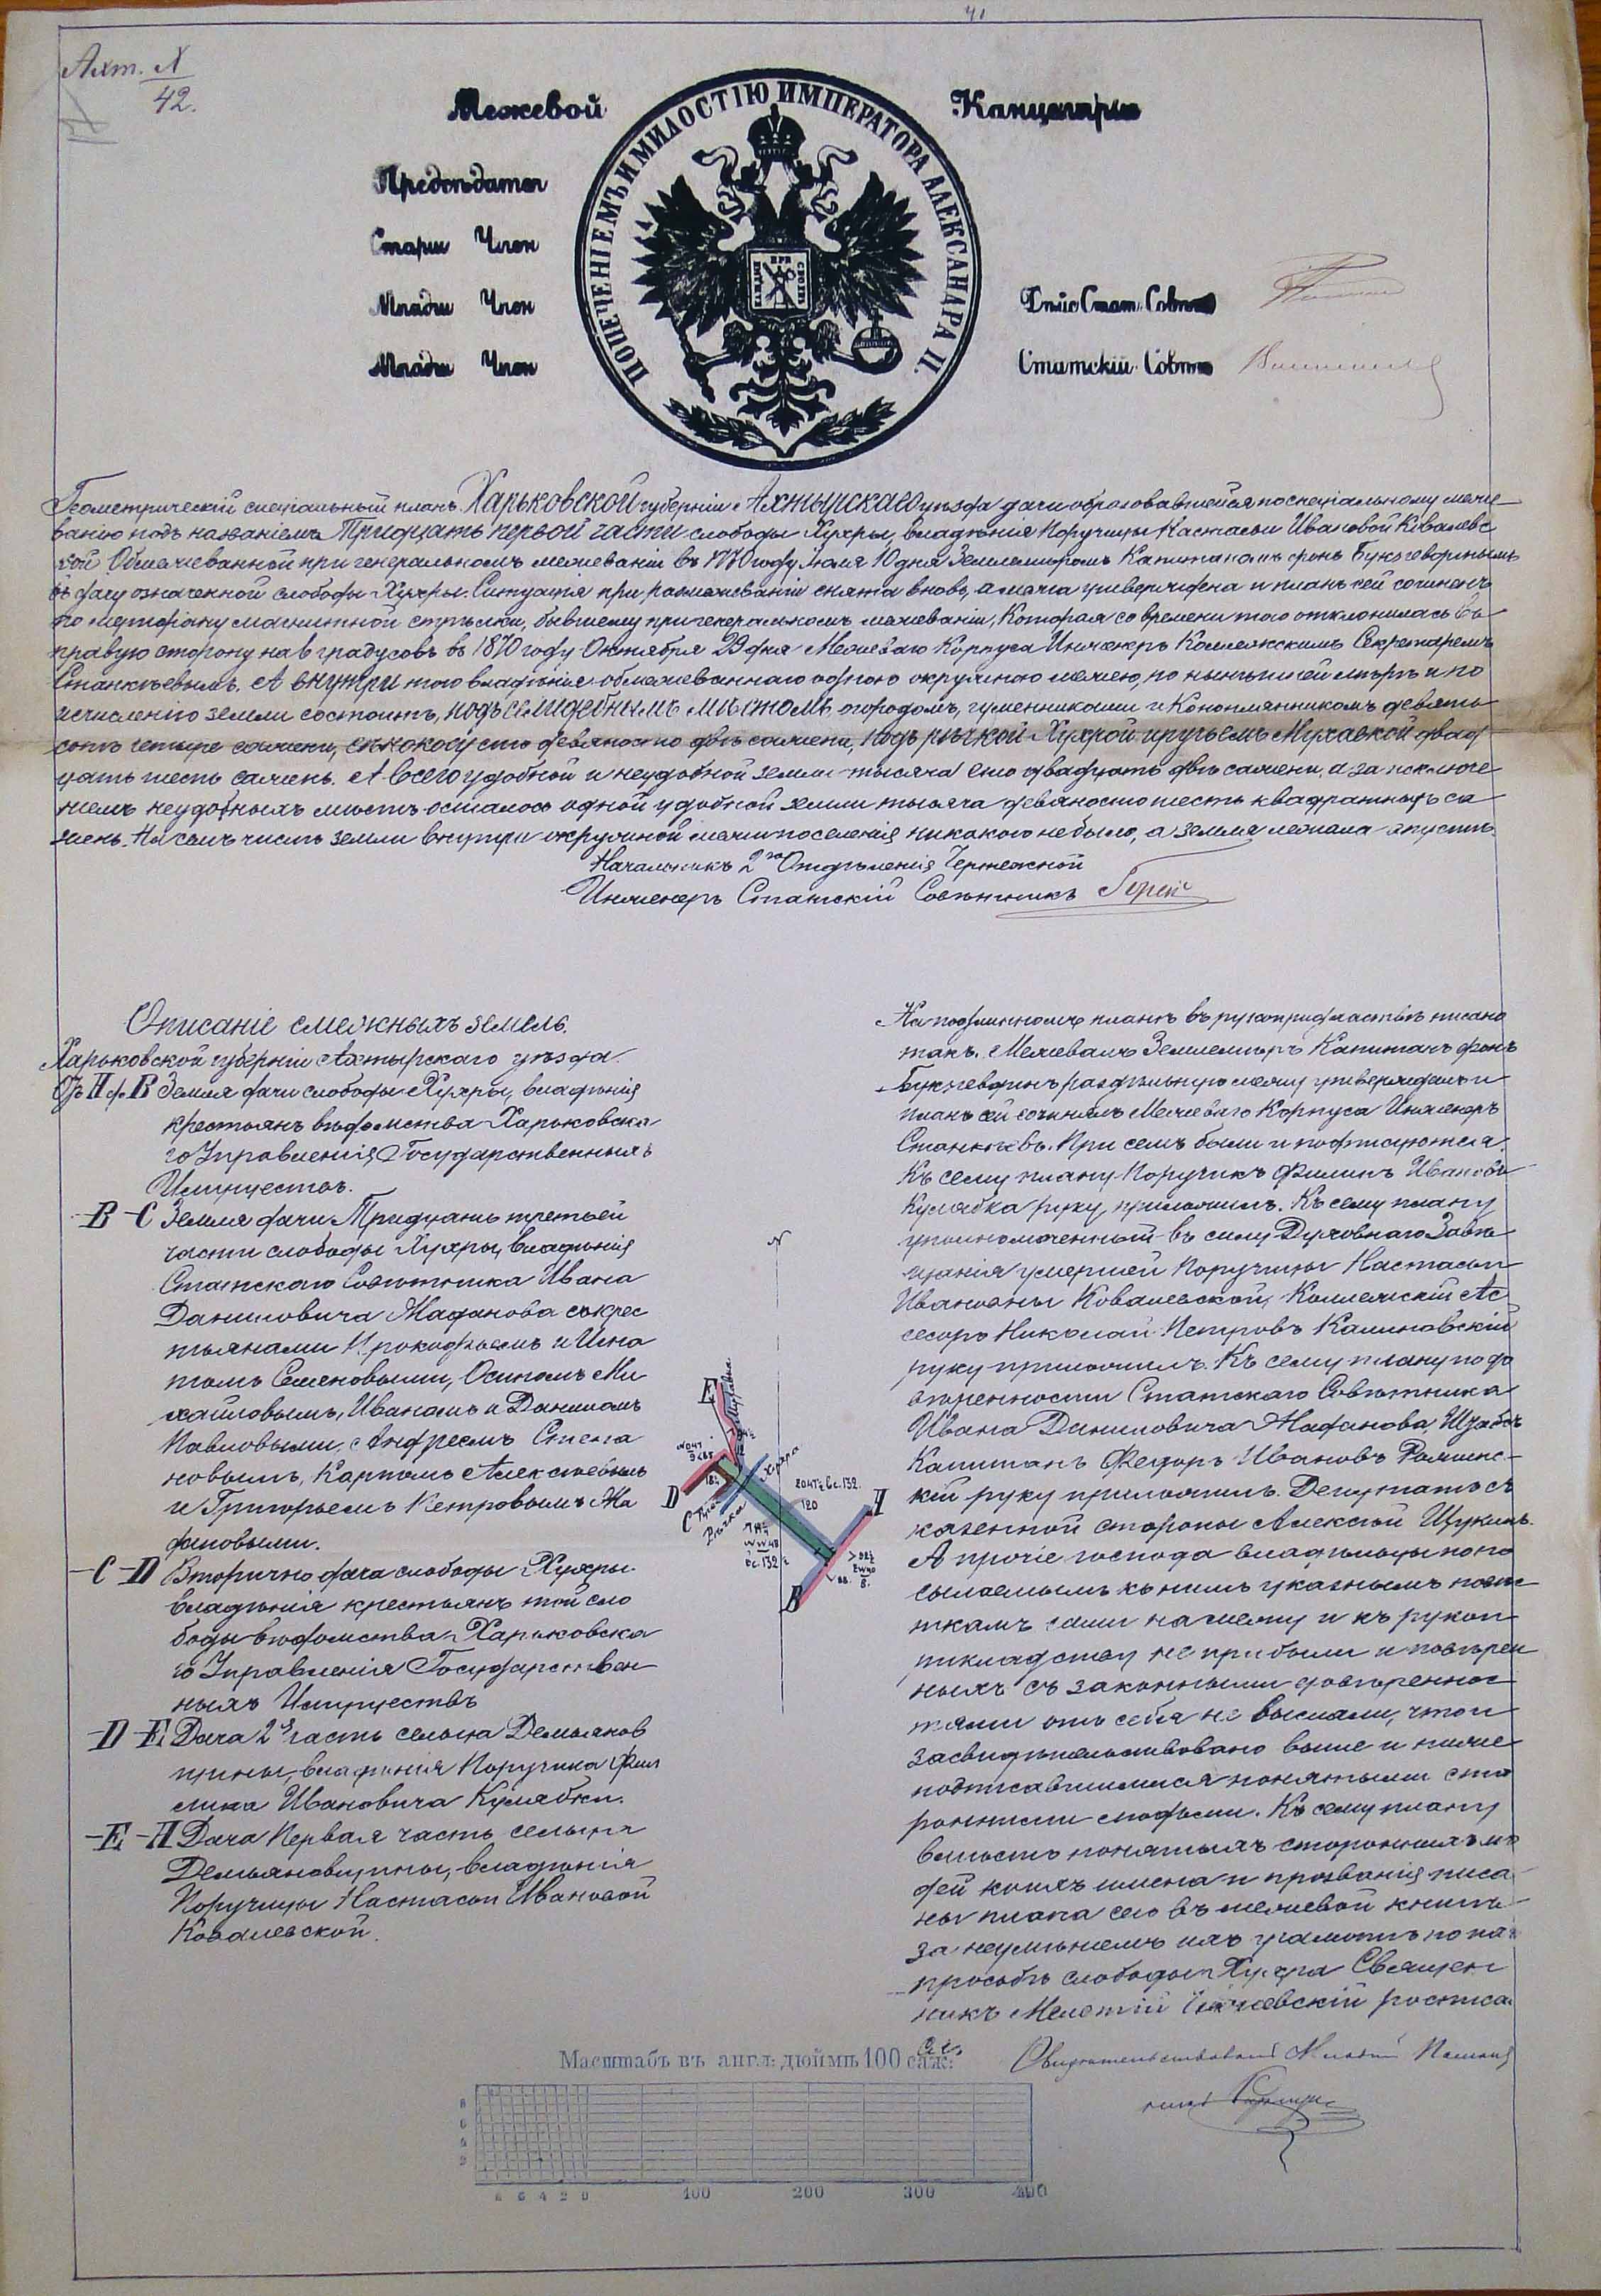 41
Ахт. X
42.
Межевой Канцеляріи
ПОПЕЧЕНІЕМЪ И МИЛОСТІЮ ИМПЕРАТОРА АЛЕКСАНДРА II.
Предсѣдатель
Старш Член
Младш Член
Дѣйс Стат. Совѣт
Младш Член
Статскій Совѣт
Геометрическій спеціальный планъ Харьковской губерніи Ахтырскаго уѣзда дачи образовавшейся по спеціальному меже
ванію подъ названіемъ Тридцать первой части слободы Хухры, владѣнія Поручицы Настасьи Ивановой Ковалевс
кой. Обмежеванной при генеральномъ межеваніи въ 1770 году Іюля 10 дня Землемѣромъ Капитаномъ фонъ Буксгевденымъ
въ дачу означенной слободы Хухры. Ситуація при размежеваніи снята вновь, а межа утверждена и планъ сей сочиненъ
по меридіану магнитной стрѣлки, бывшему при генеральномъ межеваніи, Которая со времени того отклонилась въ
правую сторону на 6 градусовъ въ 1870 году Октября 29 дня Межеваго Корпуса Инженеръ Коллежскимъ Секретаремъ
Станкѣевымъ. А внутри того владѣнія обмежеваннаго одною окружною межею, по нынѣшней мѣрѣ и по
исчисленію земли состоитъ, подъ селидебнымъ мѣстомъ, огородомъ, гуменниками и Конопляникомъ девять
сотъ четыре сажени, сенокосу сто девяносто двѣ сажени, подъ рѣчкой Хухрой и ручьемъ Мухавкой двад
цать шесть сажень. А всего удобной и неудобной земли тысяча сто двадцать двѣ сажени, а за исключе
ніемъ неудобныхъ мѣстъ осталось одной удобной земли тысяча девяносто шесть квадратныхъ са
жень. На семъ числѣ земли внутри окружной межи поселенія никакого не было, а земля лежала впустѣ.
Начальникъ 2го Отдѣленія Чертежной
Инженеръ Статскій Совѣтникъ
Описаніе смежныхъ земель.
Харьковской губерніи Ахтырскаго уѣзда.
Отъ А до В Земля дачи слободы Хухры, владѣнія
крестьянъ вѣдомства Харьковска
го Управленія Государственныхъ
Имуществъ.
В С Земля дачи Тридцать третьей
части слободы Хухры, владѣнія
Статскаго Совѣтника Ивана
Даниловича Жаданова съ крес
тьянами Прокофьемъ и Игна
томъ Семеновыми, Осипомъ Ми
хайловымъ, Иваномъ и Даниломъ
Павловыми, Андреемъ Степа
новымъ, Карпомъ Алексѣевымъ
и Григорьемъ Петровымъ Жа
дановыми.
С D Вторично дача слободы Хухры.
владѣнія крестьянъ той сло
боды вѣдомства Харьковска
го Управленія Государствен
ныхъ Имуществъ
D E Дача 2я часть сельца Демьянов
щины, владѣнія Поручика Фил
липа Ивановича Кулябки.
E А Дача Первая часть сельца
Демьяновщины, владѣнія
Поручицы Настасьи Ивановой
Ковалевской.
N
E
D
C
А
В
Рѣчка
Хухра
120
На подлинномъ планѣ въ рукоприкладствѣ писано
такъ. Межевалъ Землемѣръ Капитанъ фонъ
Буксгевдинъ раздѣльную межу утверждалъ и
планъ сей сочинялъ Межеваго Корпуса Инженеръ
Станкѣевъ. При семъ были и подписуются.
Къ сему плану Поручикъ Филипъ Ивановъ
Кулябка руку приложилъ. Къ сему плану
уполномоченный въ силу Духовнаго Завѣ
щанія умершей Поручицы Настасьи
Ивановны Ковалевской, Коллежскій Ас
сесоръ Николай Петровъ Калиновскій
руку приложилъ. Къ сему плану по до
вѣренности Статскаго Совѣтника
Ивана Даниловича Жаданова, Штабсъ
Капитанъ Федоръ Ивановъ
руку приложилъ. Депутатъ съ
казенной стороны Алексѣй Щукинъ.
А прочіе господа владѣльцы по по
сылаемымъ къ нимъ указнымъ повѣс
ткамъ сами на межу и къ рукоп
рикладству не прибыли и повѣрен
ныхъ съ законными довѣреннос
тями отъ себя не выслали, что и
засвидѣтельствовано выше и ниже
подписавшимися понятыми сто
ронними людьми. Къ сему плану
вмѣсто понятыхъ стороннихъ лю
дей коихъ имена и прозванія писа
ны плана сего въ межевой книгѣ
за неумѣніемъ ихъ грамотѣ по на
просьбѣ слободы Хухра Священ
никъ Мелетій росписа
лся.
Масштабъ въ англ: дюймѣ 100 саж:
8
6
4
2
8 6 4 2 0 100 200 300 400